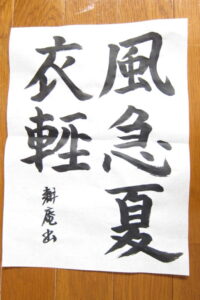 風急夏
衣輕